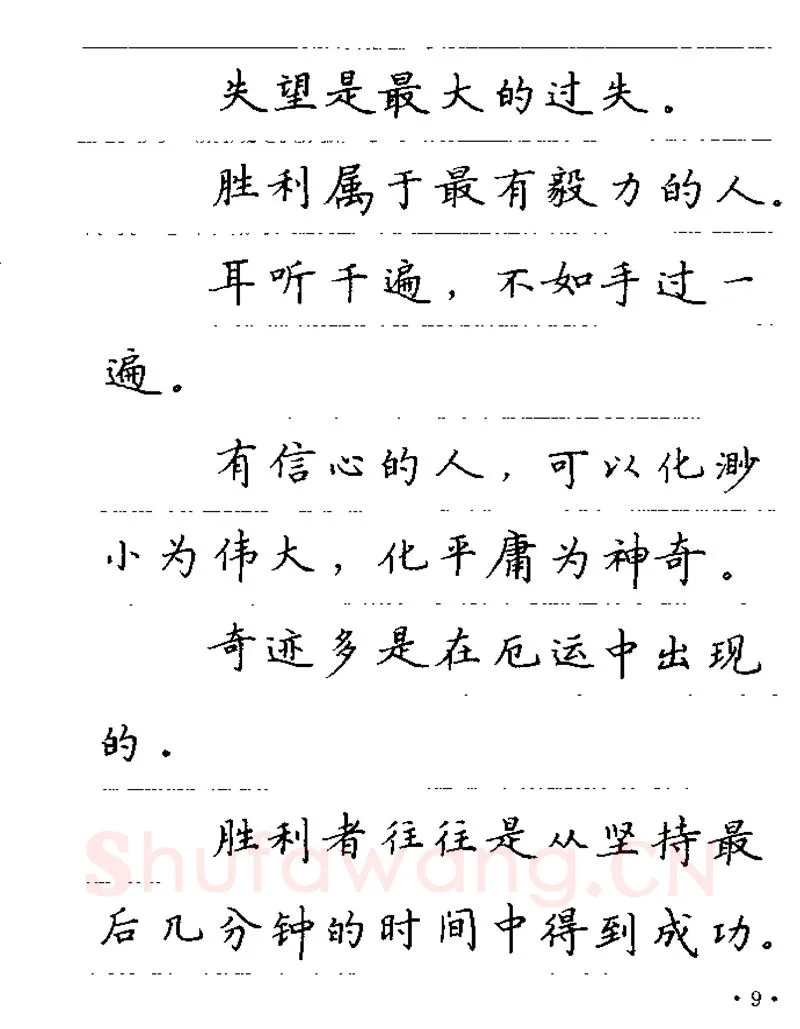 失望是最大的过失。
胜利属于最有毅力的人。
耳听千遍，不如手过一
遍。
有信心的人，可以化渺
小为伟大，化平庸为神奇。
奇迹多是在厄运中出现
的.
胜利者往往是从坚持最
后几分钟的时间中得到成功。
Shufawang.CN
·9·